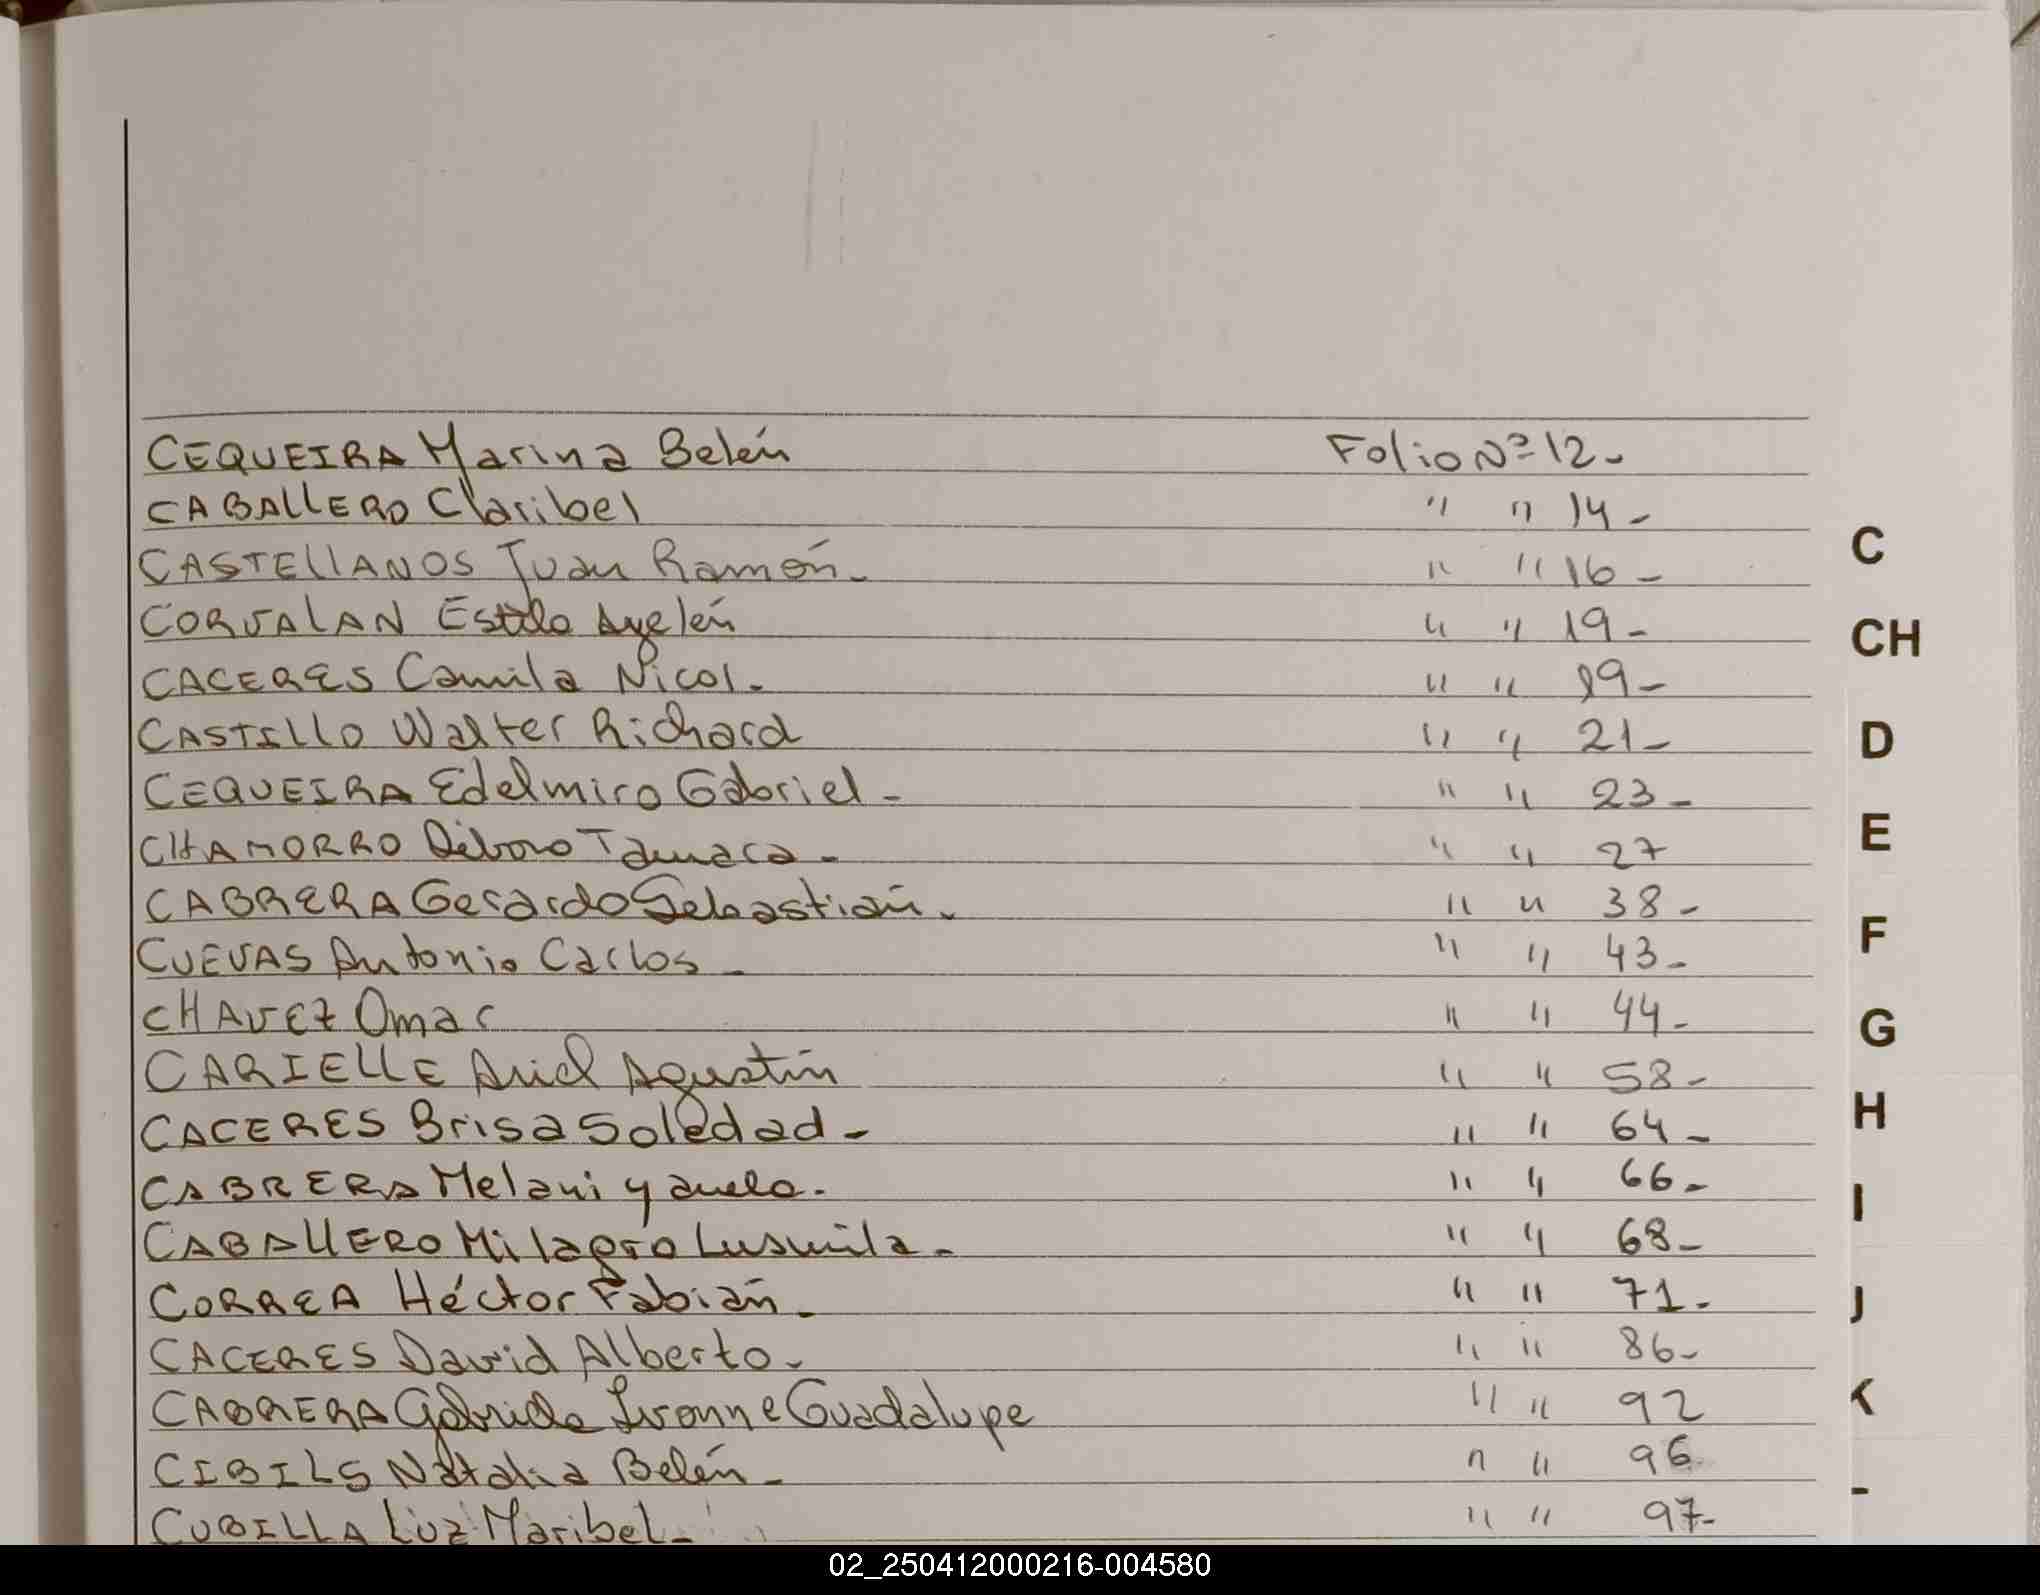 CEQUEIRA Marina Belén Folio Nº 12-
CABALLERO Claribel " " 14-
CASTELLANOS Juan Ramón- " " 16-
C
CORVALAN Estela Ayelén " " 19-
CH
CACERES Camila Nicol- " " 19-
CASTILLO Walter Richard " " 21-
D
CEQUEIRA Edelmiro Gabriel- " " 23-
CHAMORRO Débora Tamara- " " 27
E
CABRERA Gerardo Sebastián- " " 38-
CUEVAS Antonio Carlos- " " 43-
F
CHAVEZ Omar " " 44-
G
CARIELLE Ariel Agustín " " 58-
CACERES Brisa Soledad- " " 64-
H
CABRERA Melani yanela- " " 66-
I
CABALLERO Milagro Lusmila- " " 68-
CORREA Héctor Fabián- " " 71-
J
CACERES David Alberto- " " 86-
CABRERA Gabriela Ivonne Guadalupe " " 92
K
CIBILS Natalia Belén- " " 96
CUBILLA Luz Maribel- " " 97-
02_250412000216-004580